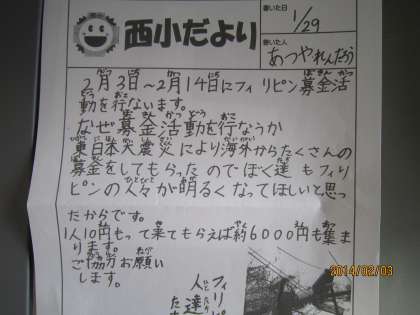 西小だより
書いた日
1/29
書いた人
あつやれんたろう
2月3日～2月14日にフィリピン募金活
動を行ないます。
なぜ募金活動を行なうか
東日本大震災により海外からたくさんの
募金をしてもらったのでぼく達もフィリ
ピンの人々が明るくなってほしいと思っ
たからです。
1人10円もって来てもらえば約6000円も集ま
ります。
ご協力お願い
します。
フィリピ
人達
た
2014/02/03